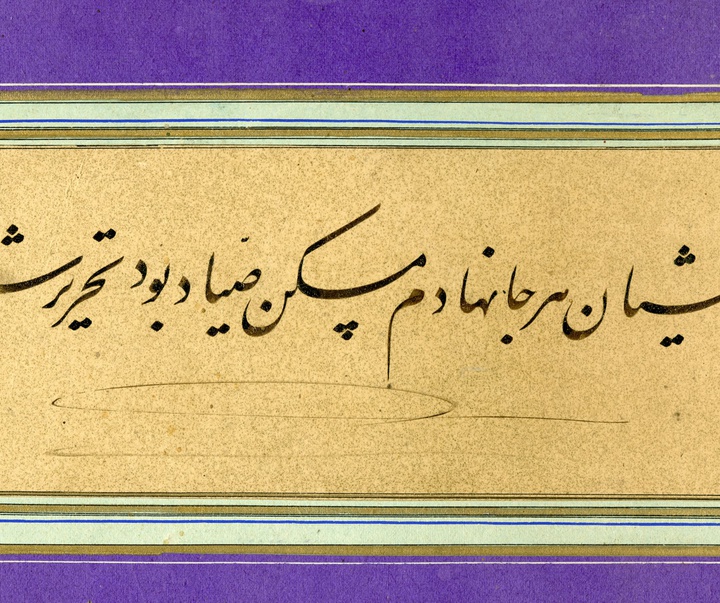 شیان هر جا نهادم مسکن صیّاد بود تحریر